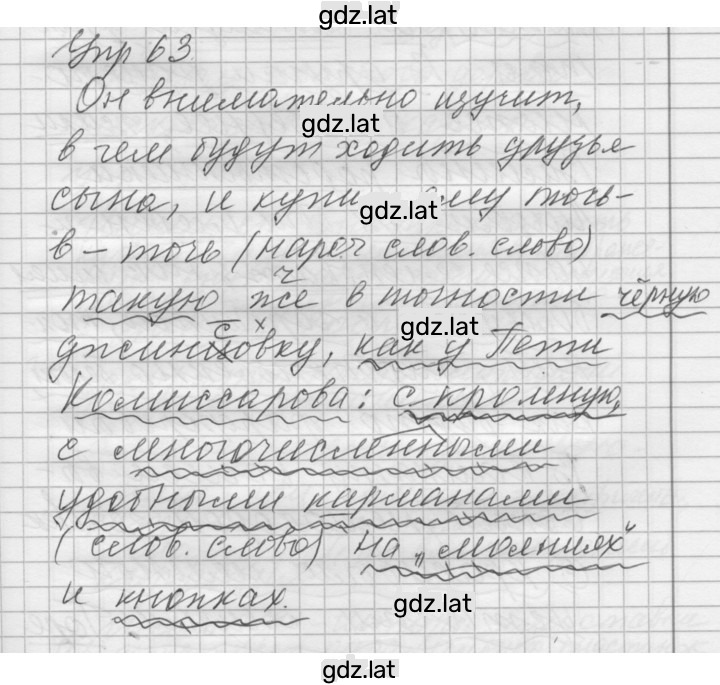 gdz.lat
Упр 63.
Он внимательно изучит,
gdz.lat
в чем будут ходить друзья
сына, и купи ему точь-
gdz.lat
в-точь (нареч слов. слово)
ч
такую же в точности чёрную
с х
gdz.lat
джинсовку, как у Пети
Комиссарова: с кроленую,
с многочисленными
удобными карманами
(слов. слово) на „молниях"
и кнопках.
gdz.lat
gdz.lat